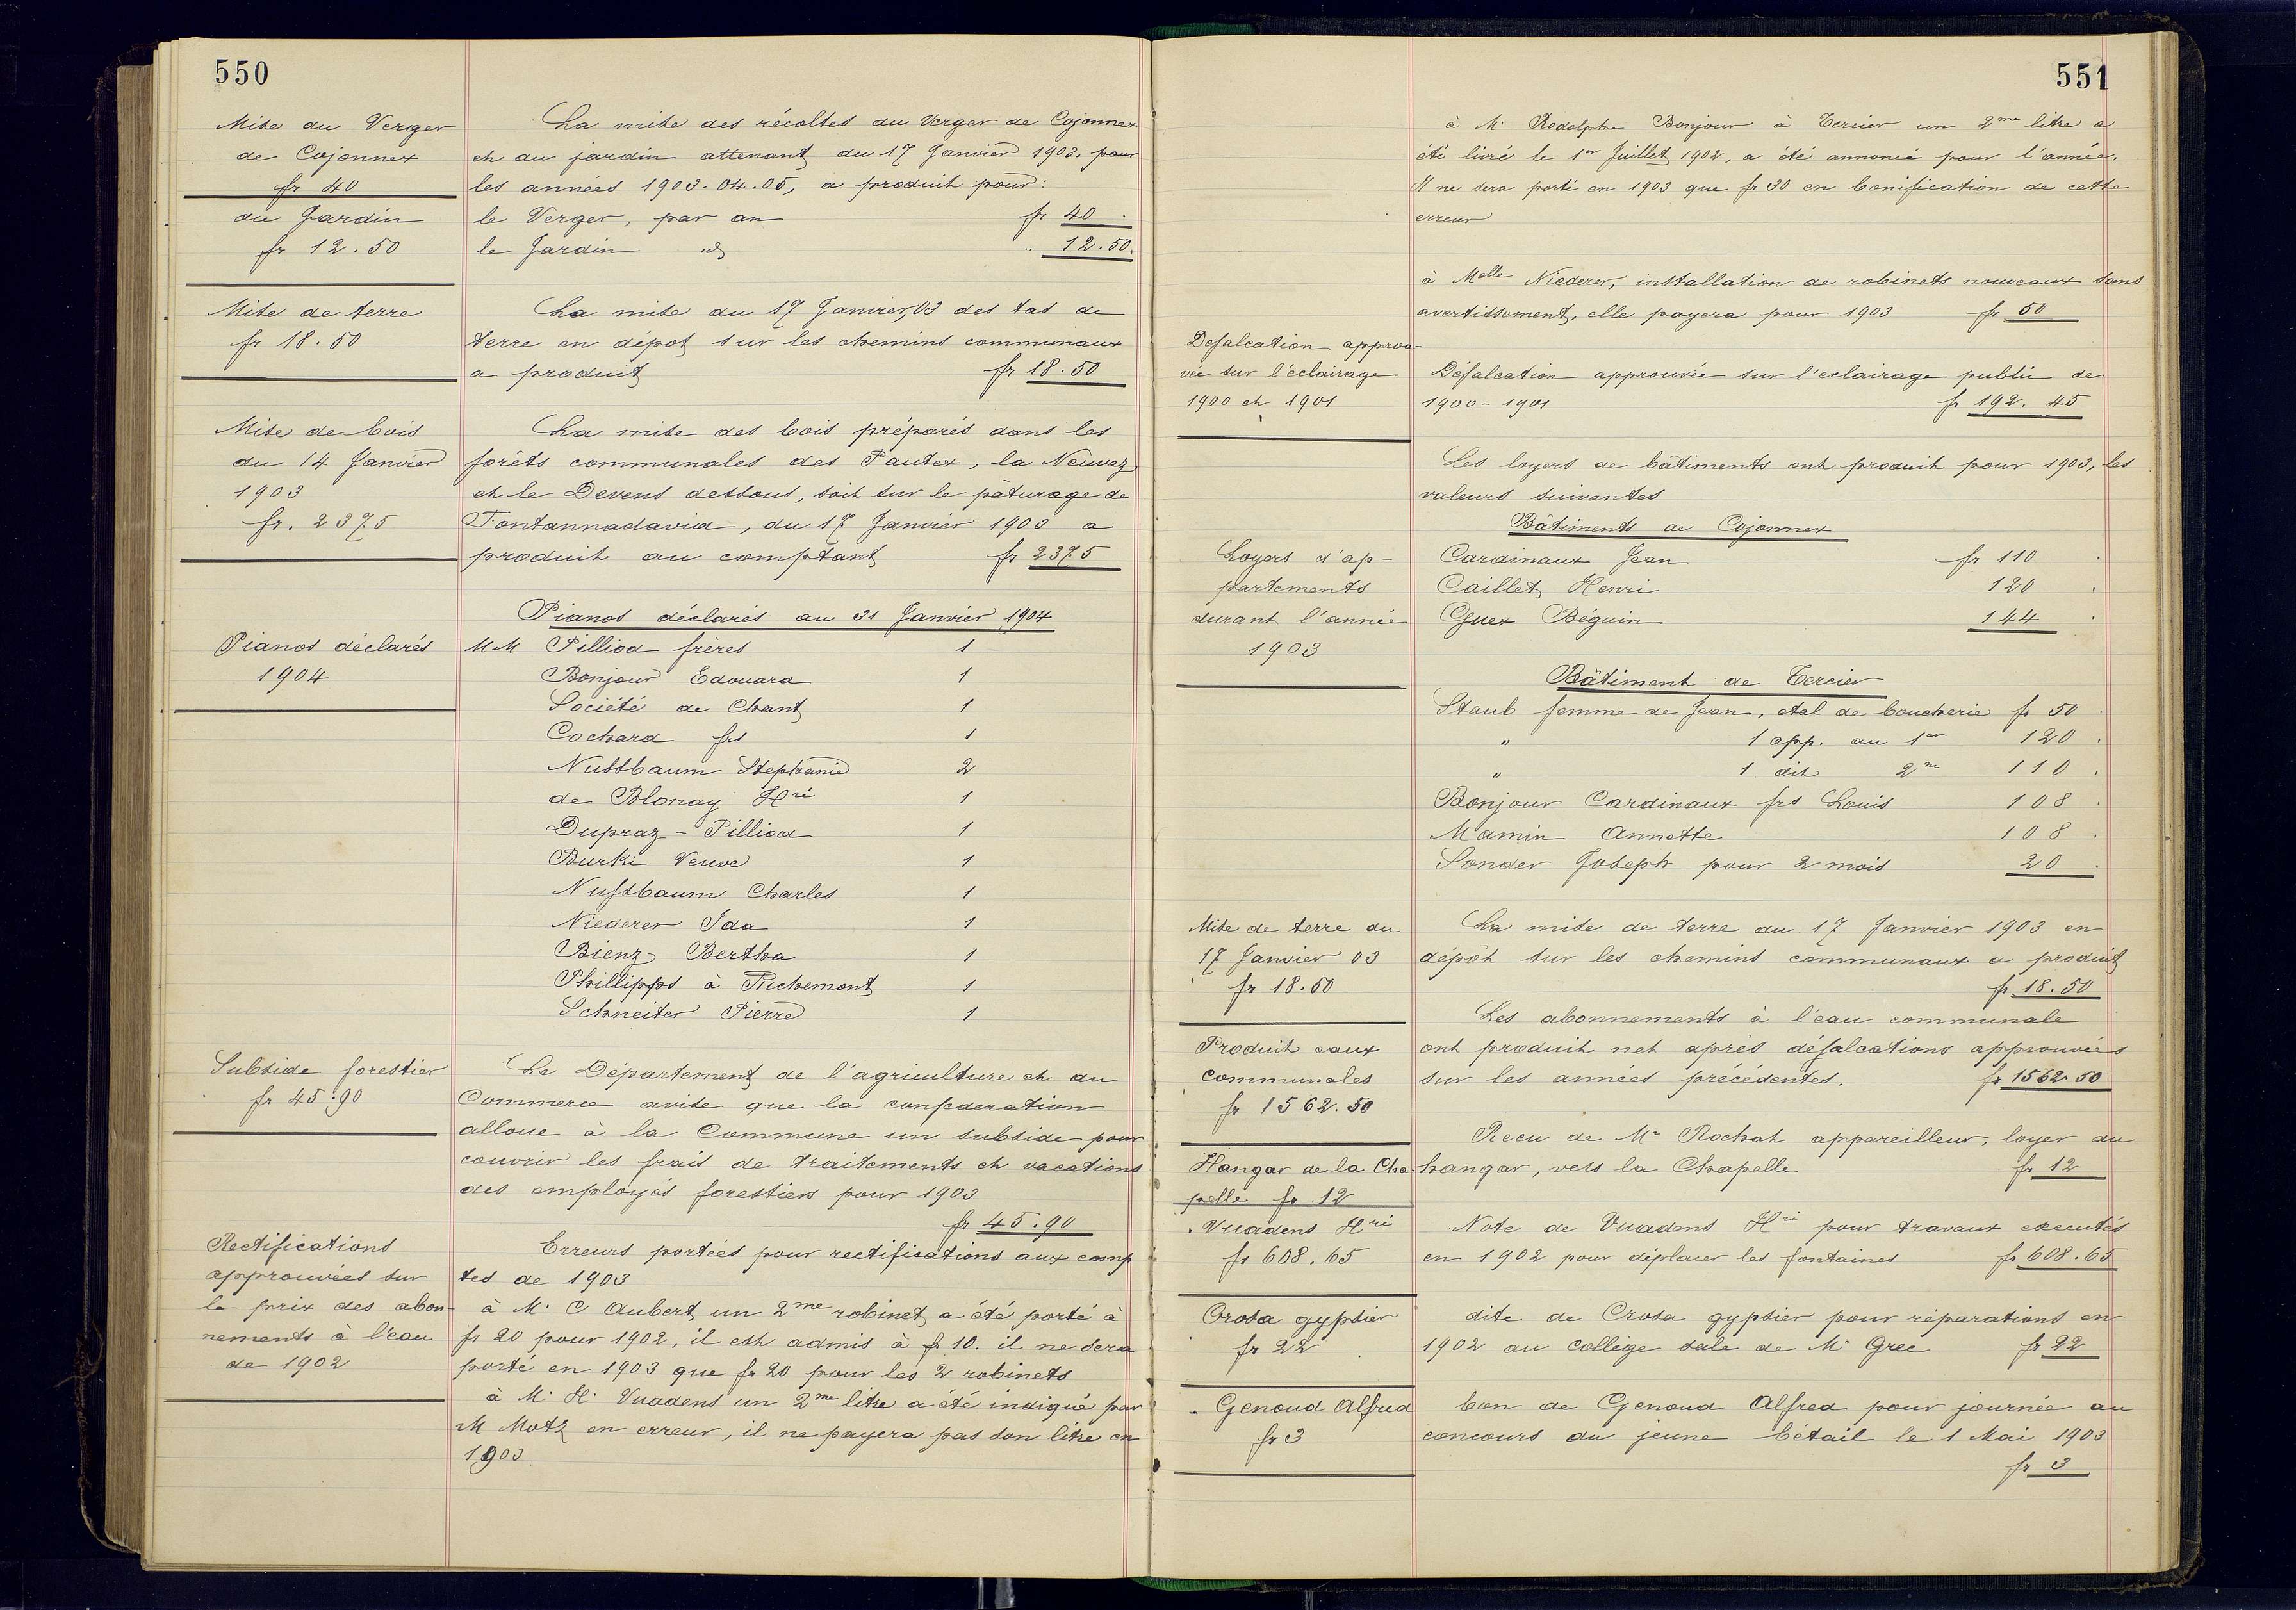 550
Mise du Verger
de Cojonnex
fr 40
du Jardin
fr 12.50
La mise des récoltes du Verger de Cojonnex
et du jardin attenant du 17 Janvier 1903. pour
les années 1903. 04. 05, a produit pour:
le Verger, par an fr 40 .
le Jardin id „ 12.50.
Mise de terre
fr 18.50
La mise du 17 Janvier, 03 des tas de
terre en dépot sur les chemins communaux
a produit fr 18.50
Mise de bois
du 14 Janvier
1903
fr. 2375
La mise des bois préparés dans les
forêts communales des Pautex, la Neuvaz
et le Devens dessous, soit sur le pâturage de
Fontannadavid, du 17 Janvier 1903 a
produit au comptant fr 2375
Pianos déclarés
1904
Pianos déclarés au 31 Janvier 1904
MM Pilliod frères 1
Bonjour Edouard 1
Société de Chant 1
Cochard frs 1
Nussbaum Stephanie 2
de Blonay Hri 1
Dupraz - Pilliod 1
Burki Veuve 1
Nussbaum Charles 1
Niederer Ida 1
Bienz Bertha 1
Phillipps à Richemont 1
Schneiter Pierre 1
Subside forestier
fr 45.90
Le Département de l'agriculture et du
Commerce avise que la confederation
alloue à la Commune un subside pour
couvrir les frais de traitements et vacations
des employés forestiers pour 1903
fr 45.90
Rectifications
approuvées sur
le prix des abon-
nements à l'eau
de 1902
Erreurs portées pour rectifications aux comp
tes de 1903
à M. C Aubert un 2me robinet a été porté à
fr 20 pour 1902, il est admis à fr 10. il ne sera
porté en 1903 que fr 20 pour les 2 robinets
à M. H. Vuadens un 2me litre a été indiqué par
M Motz en erreur, il ne payera pas son litre en
1903
551
à M. Rodolphe Bonjour à Tercier un 2me litre a
été livré le 1er Juillet 1902, a été annoncé pour l'année.
Il ne sera porté en 1903 que fr 30 en bonification de cette
erreur
à Melle Niederer, installation de robinets nouveaux sans
avertissement, elle payera pour 1903 fr 50
Defalcation approu-
vée sur l'éclairage
1900 et 1901
Défalcation approuvée sur l'eclairage public de
1900 - 1901 fr 192. 45
Les loyers de bâtiments ont produit pour 1903, les
valeurs suivantes
Loyers d'ap-
partements
durant l'année
1903
Bâtiments de Cojonnex
Cardinaux Jean fr 110 .
Caillet Henri 120 .
Guex Béguin 144 .
Bâtiment de Tercier
Staub femme de Jean, etal de boucherie fr 50 .
" 1 app. au 1er 120 .
" 1 dit 2me 110 .
Bonjour Cardinaux frs Louis 108 .
Mamin Annette 108 .
Sonder Joseph pour 2 mois 20 .
Mise de terre du
17 Janvier 03
fr 18.50
La mise de terre du 17 Janvier 1903 en
dépôt sur les chemins communaux a produit
fr 18.50
Produit eaux
communales
fr 1562.50
Les abonnements à l'eau communale
ont produit net après défalcations approuvées
sur les années précédentes. fr 1562.50
Hangar de la Cha-
pelle fr 12
Recu de Mr Rochat appareilleur, loyer du
hangar, vers la Chapelle fr 12
Vuadens Hri
fr 608.65
Note de Vuadens Hri pour travaux executés
en 1902 pour déplacer les fontaines fr 608.65
Crosa gypsier
fr 22
dite de Crosa gypsier pour réparations en
1902 au collège sale de Mr Grec fr 22
Genoud Alfred
fr 3
bon de Genoud Alfred pour journée au
concours du jeune bétail le 1 Mai 1903
fr 3